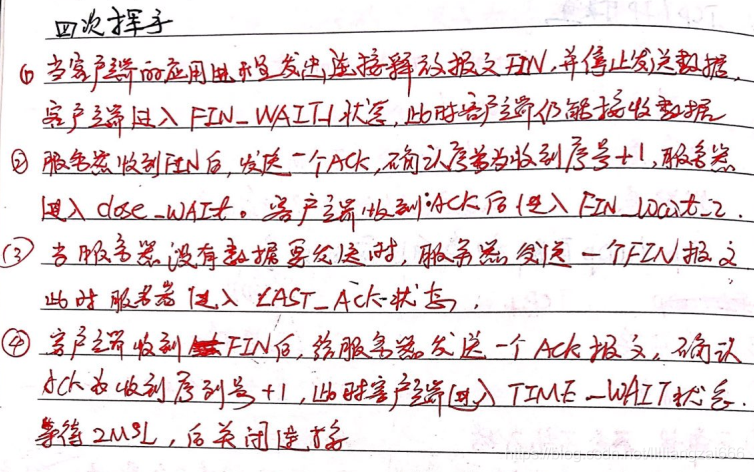 四次挥手
① 当客户端的应用进程发出连接释放报文FIN,并停止发送数据,
客户端进入 FIN_WAIT_1状态,此时客户端仍能接收数据
② 服务器收到FIN后,发送一个ACK,确认序号为收到序号+1,服务器
进入 close_WAIt。客户端收到ACK后进入 FIN_wait_2.
(3) 当服务器没有数据要发送时,服务器发送一个FIN报文
此时服务器进入 LAST_Ack状态,
④ 客户端收到FIN后,给服务器发送一个ACK报文,确认
Ack为收到序列号+1,此时客户端进入 TIME_WAIT状态.
等待2MSL,后关闭连接